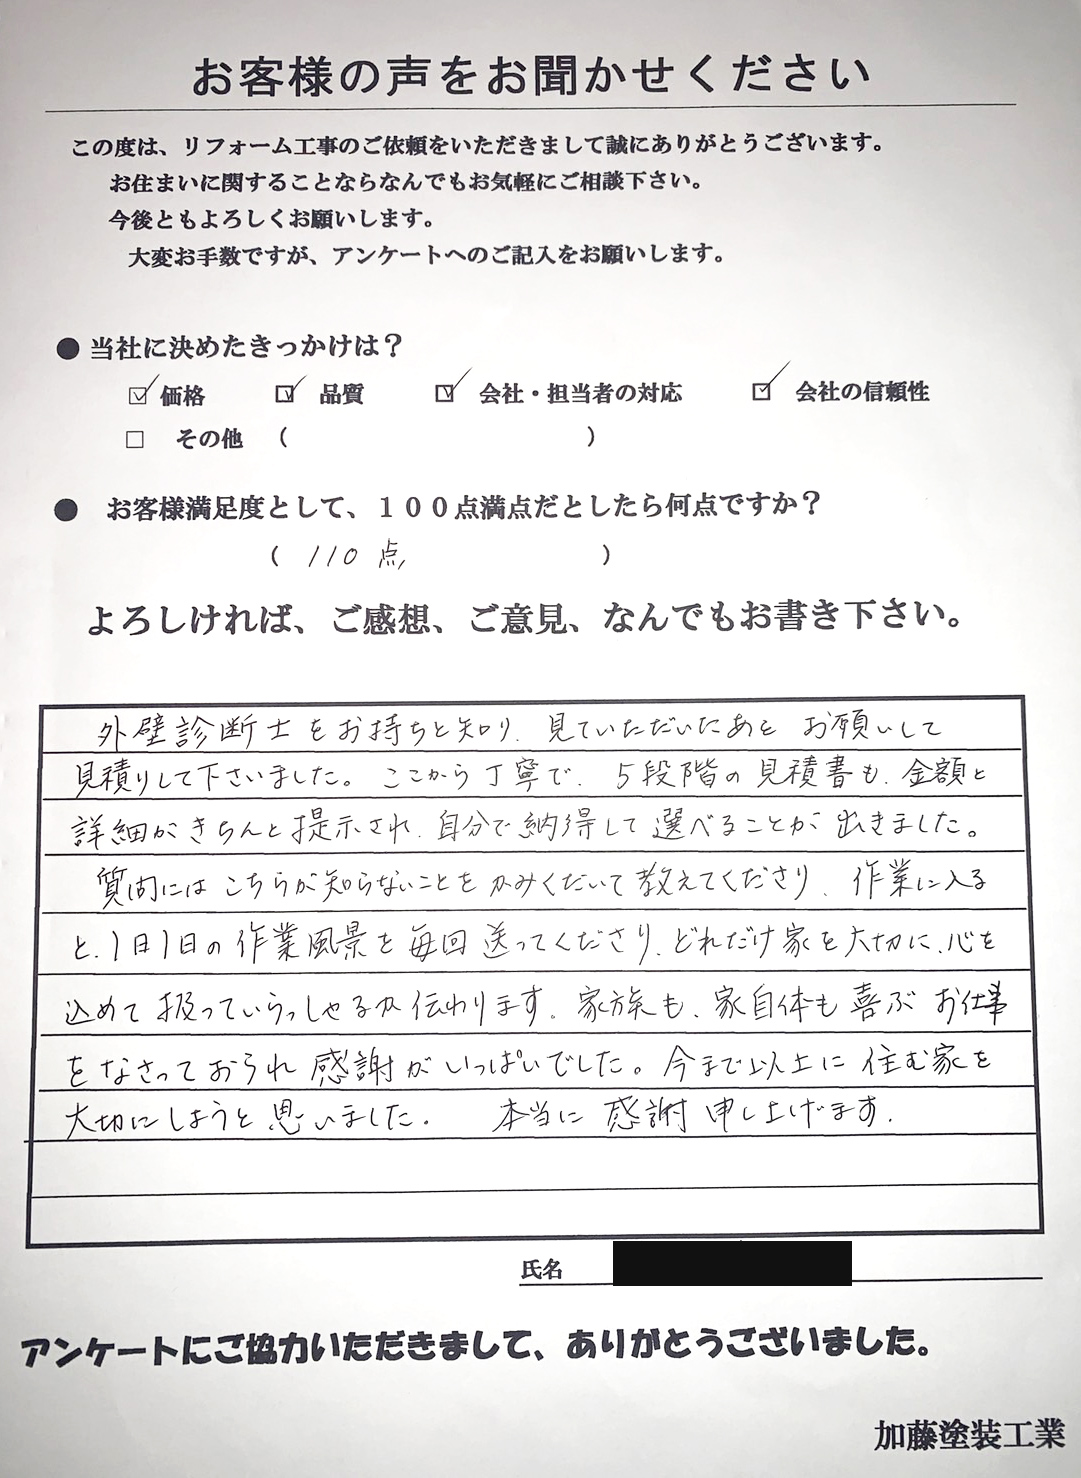 お客様の声をお聞かせください
この度は、リフォーム工事のご依頼をいただきまして誠にありがとうございます。
お住まいに関することならなんでもお気軽にご相談下さい。
今後ともよろしくお願いします。
大変お手数ですが、アンケートへのご記入をお願いします。
● 当社に決めたきっかけは？
☑ 価格 ☑ 品質 ☑ 会社・担当者の対応 ☑ 会社の信頼性
□ その他 （ ）
● お客様満足度として、１００点満点だとしたら何点ですか？
（ 110 点 ）
よろしければ、ご感想、ご意見、なんでもお書き下さい。
外壁診断士をお持ちと知り、見ていただいたあと お願いして
見積りして下さいました。ここから丁寧で、5段階の見積書も、金額と
詳細がきちんと提示され、自分で納得して選べることが出きました。
質問にはこちらが知らないことをかみくだいて教えてくださり、作業に入る
と、1日1日の作業風景を毎回送ってくださり、どれだけ家を大切に、心を
込めて扱っていらっしゃるか伝わります。家族も、家自体も喜ぶお仕事
をなさっておられ感謝がいっぱいでした。今まで以上に住む家を
大切にしようと思いました。 本当に感謝申し上げます。
氏名
アンケートにご協力いただきまして、ありがとうございました。
加藤塗装工業